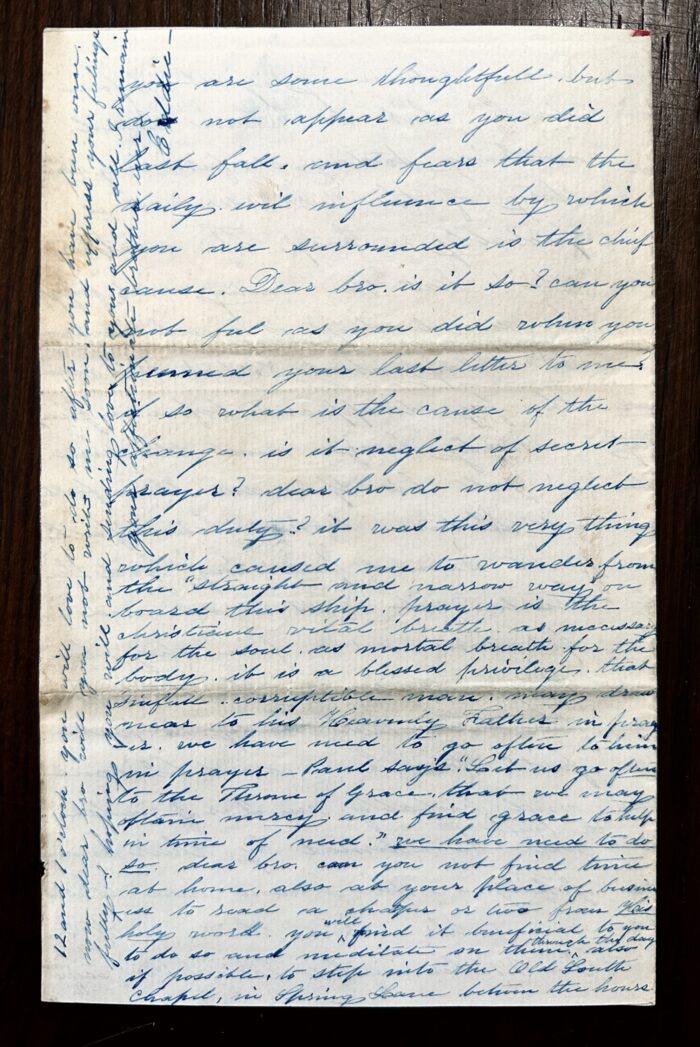 you are some thoughtfull. but
do not appear as you did
last fall. and fears that the
daily evil influence by which
you are surrounded is the chief
cause. Dear bro. is it so? can you
not feel as you did when you
penned your last letter to me?
if so what is the cause of the
change. is it neglect of secret
prayer? dear bro do not neglect
this duty? it was this very thing
which caused me to wander from
the "straight and narrow way" on
board this ship. prayer is the
christians vital breath. as necessary
for the soul. as mortal breath for the
body. it is a blessed privilege. that
sinfull. corruptible man. may draw
near to his Heavenly Father in pray
er. we have need to go often to him
in prayer - Paul says "Let us go often
to the Throne of Grace. that we may
obtain mercy and find grace to help
in time of need." we have need to do
so. dear bro. can you not find time
at home. also at your place of busin
ess to read a chapter or two from His
holy word. you will find it beneficial to you
to do so and meditate on them through the day also
if possible. to step into the Old South
Chapel, in Spring Lane between the hours
12 and 1 o'clock. you will love to do so after you have been once.
now dear bro will you not write me soon. and express your feelings
fully - hoping you will and sending love to you and all. I remain
your affectionate brother
Eddie -